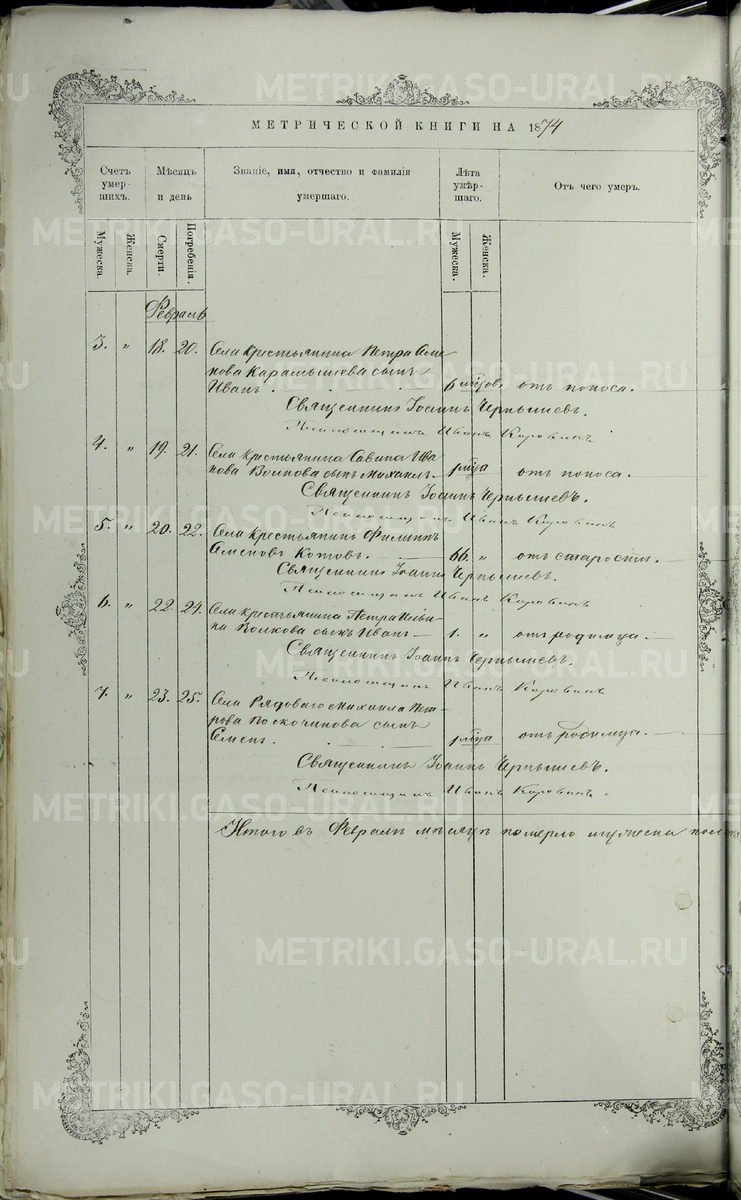 МЕТРИЧЕСКОЙ КНИГИ НА 1874
Счетъ умершихъ.
Мѣсяцъ и день
Званіе, имя, отчество и фамилія умершаго.
Лѣта умѣршаго.
Отъ чего умеръ.
Мужеска.
Женска.
Смерти.
Погребенія.
Мужеска.
Женска.
Февраль
3. " 18. 20. Села Крестьянина Петра Семе-
нова Карамышева сынъ
Иванъ. отъ поноса.
Священникъ Іоаннъ Чернышевъ.
Псаломщикъ Иванъ Коровинъ
4. " 19. 21. Села Крестьянина Савина Ива-
нова Волкова сынъ Михаилъ. отъ поноса.
Священникъ Іоаннъ Чернышевъ.
Псаломщикъ Иванъ Коровинъ
5. " 20. 22. Села Крестьянинъ Филиппъ
Семеновъ Котовъ. 66. " отъ старости.
Священникъ Іоаннъ Чернышевъ.
Псаломщикъ Иванъ Коровинъ
6. " 22. 24. Села Крестьянина Петра
Волкова сынъ Иванъ 1. " отъ родимца.
Священникъ Іоаннъ Чернышевъ.
Псаломщикъ Иванъ Коровинъ
7. " 23. 25. Села Рядоваго Михаила Пет-
рова Поскочинова сынъ
Семенъ. отъ родимца.
Священникъ Іоаннъ Чернышевъ.
Псаломщикъ Иванъ Коровинъ.
Итого въ Февралѣ мѣсяцѣ померло мужеска
METRIKI.GASO-URAL.RU